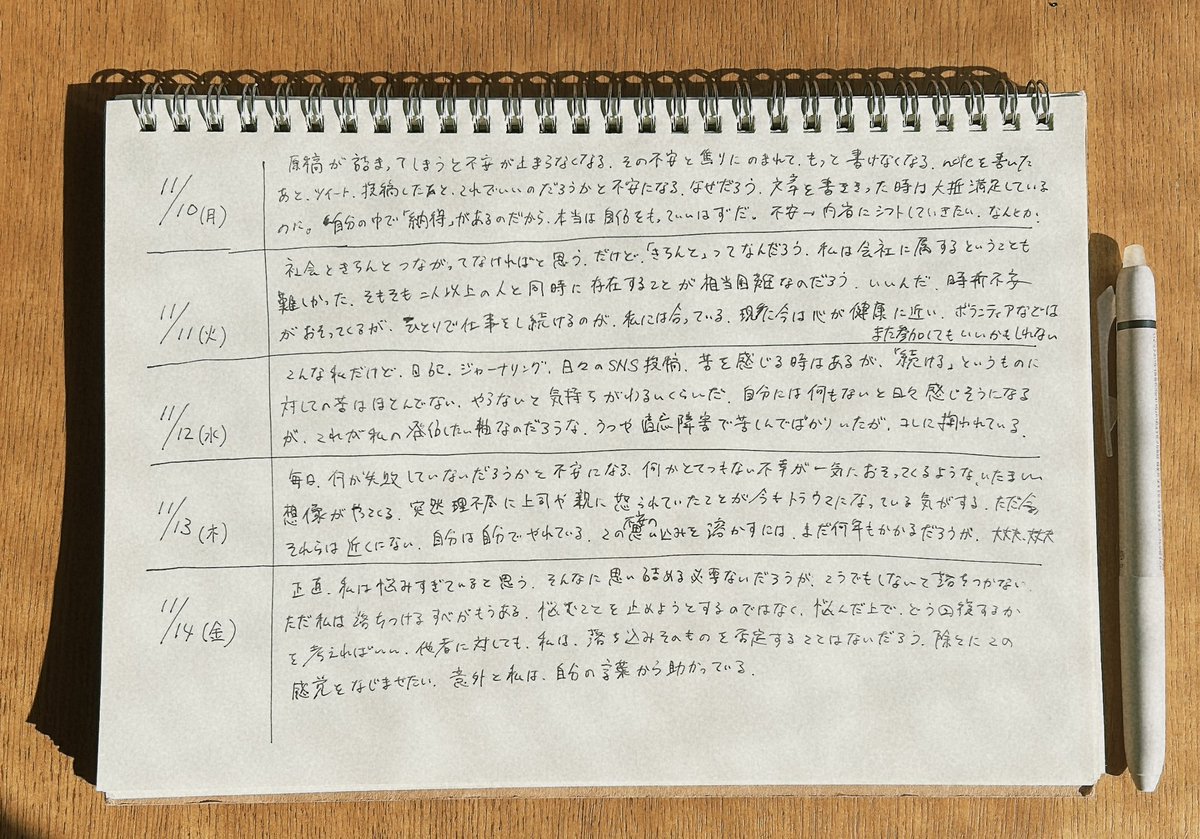 11/10(月)
原稿が詰まってしまうと不安が止まらなくなる。その不安と焦りにのまれて、もっと書けなくなる。noteを書いた
あと、ツイート、投稿したあと、これでいいのだろうかと不安になる。なぜだろう。文章を書ききった時は大抵満足している
のに。自分の中で「納得」があるのだから、本当は自信をもっていいはずだ。不安→内省にシフトしていきたい。なんとか。
11/11(火)
社会ときちんとつながってなければと思う。だけど、「きちんと」ってなんだろう。私は会社に属するということも
難しかった。そもそも二人以上の人と同時に存在することが相当困難なのだろう。いいんだ。時折不安
がおそってくるが、ひとりで仕事をし続けるのが、私には合っている。現に今は心が健康に近い。ボランティアなどでは
また参加してもいいかもしれない
11/12(水)
こんな私だけど、日記、ジャーナリング、日々のSNS投稿、苦を感じる時はあるが、「続ける」というものに
対しての苦はほとんどない。やらないと気持ちがわるいくらいだ。自分には何もないと日々感じそうになる
が、これが私の発信したい軸なのだろうな。うつや適応障害で苦しんでばかりいたが、コレに救われている。
11/13(木)
毎日、何か失敗していないだろうかと不安になる。何かとてつもない不幸が一気におそってくるような、いたましい
想像がやってくる。突然理不尽に上司や親に怒られていたことが今もトラウマになっている気がする。ただ今
それらは近くにない。自分は自分でやれている。この不安の思い込みを溶かすには、まだ何年もかかるだろうが、大丈夫、大丈夫
11/14(金)
正直、私は悩みすぎていると思う。そんなに思い詰める必要ないだろうが、こうでもしないと落ちつかない。
ただ私は落ちつけるすべがもうある。悩むことを止めようとするのではなく、悩んだ上で、どう回復するか
を考えればいい。他者に対しても、私は、落ち込みそのものを否定することはないだろう。徐々にこの
感覚をなじませたい。意外と私は、自分の言葉から助かっている。